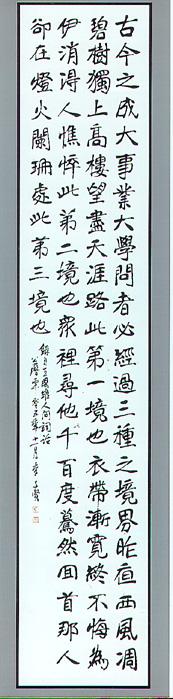 古今之成大事業大學問者必經過三種之境界昨夜西風凋
碧樹獨上高樓望盡天涯路此第一境也衣帶漸寬終不悔為
伊消得人憔悴此第二境也衆裡尋他千百度驀然回首那人
卻在燈火闌珊處此第三境也
錄自王國維人間詞話
年十一月李子